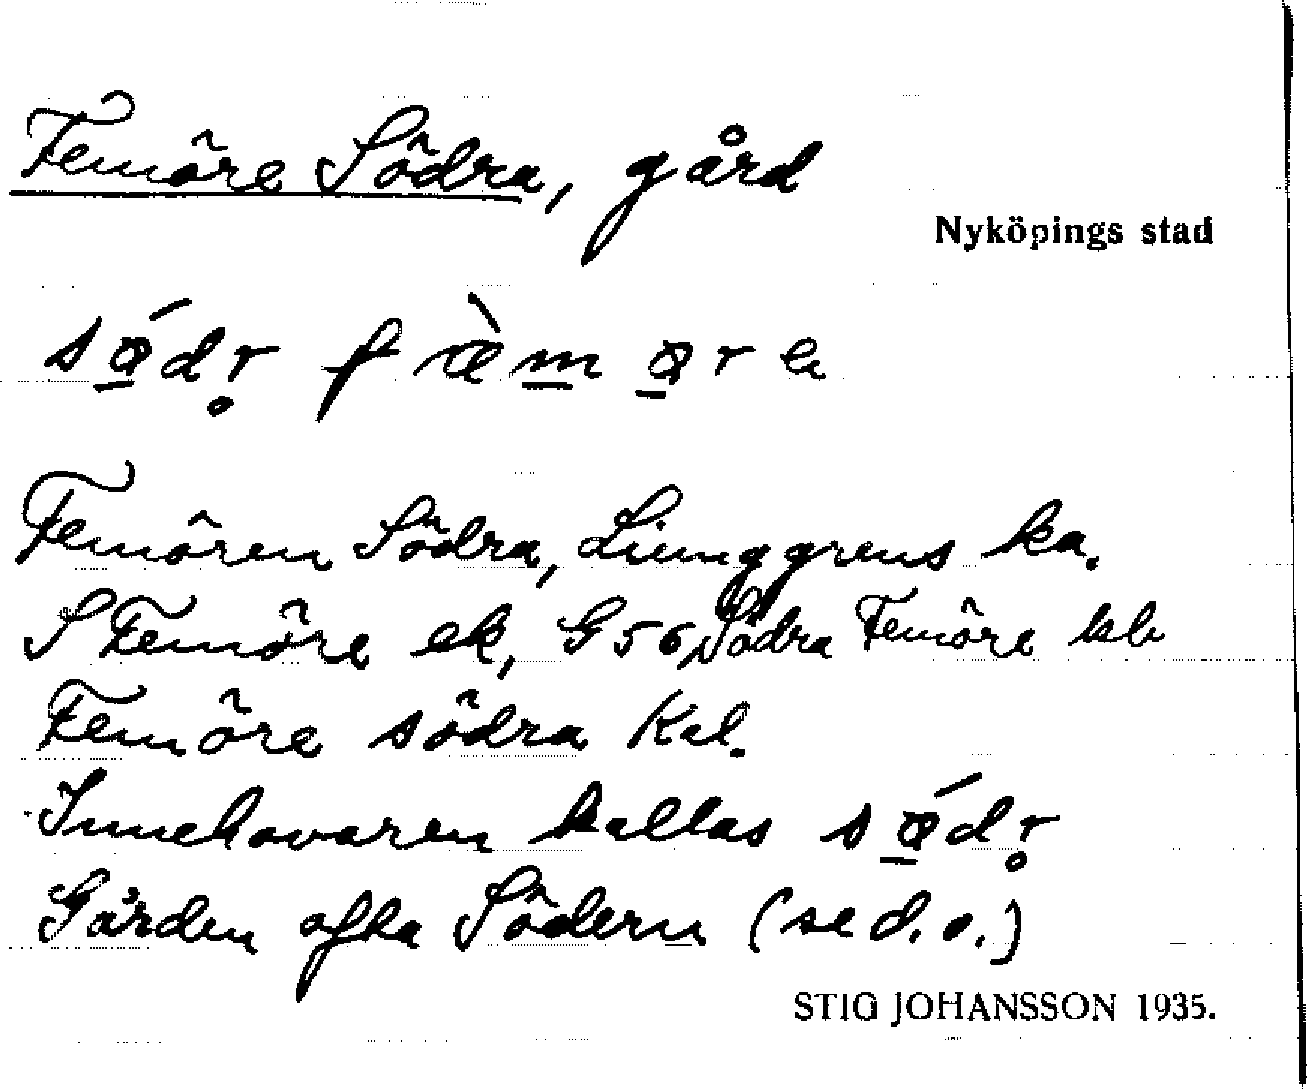 Femöre Södra, gård
Nyköpings stad
Femören Södra, Liunggrens ka.
S Femöre ek, G56, Södra Femöre hb
Femöre södra Kal.
Innehavaren kallas
Gården ofta Södern (se d.o.)
STIG JOHANSSON 1935.